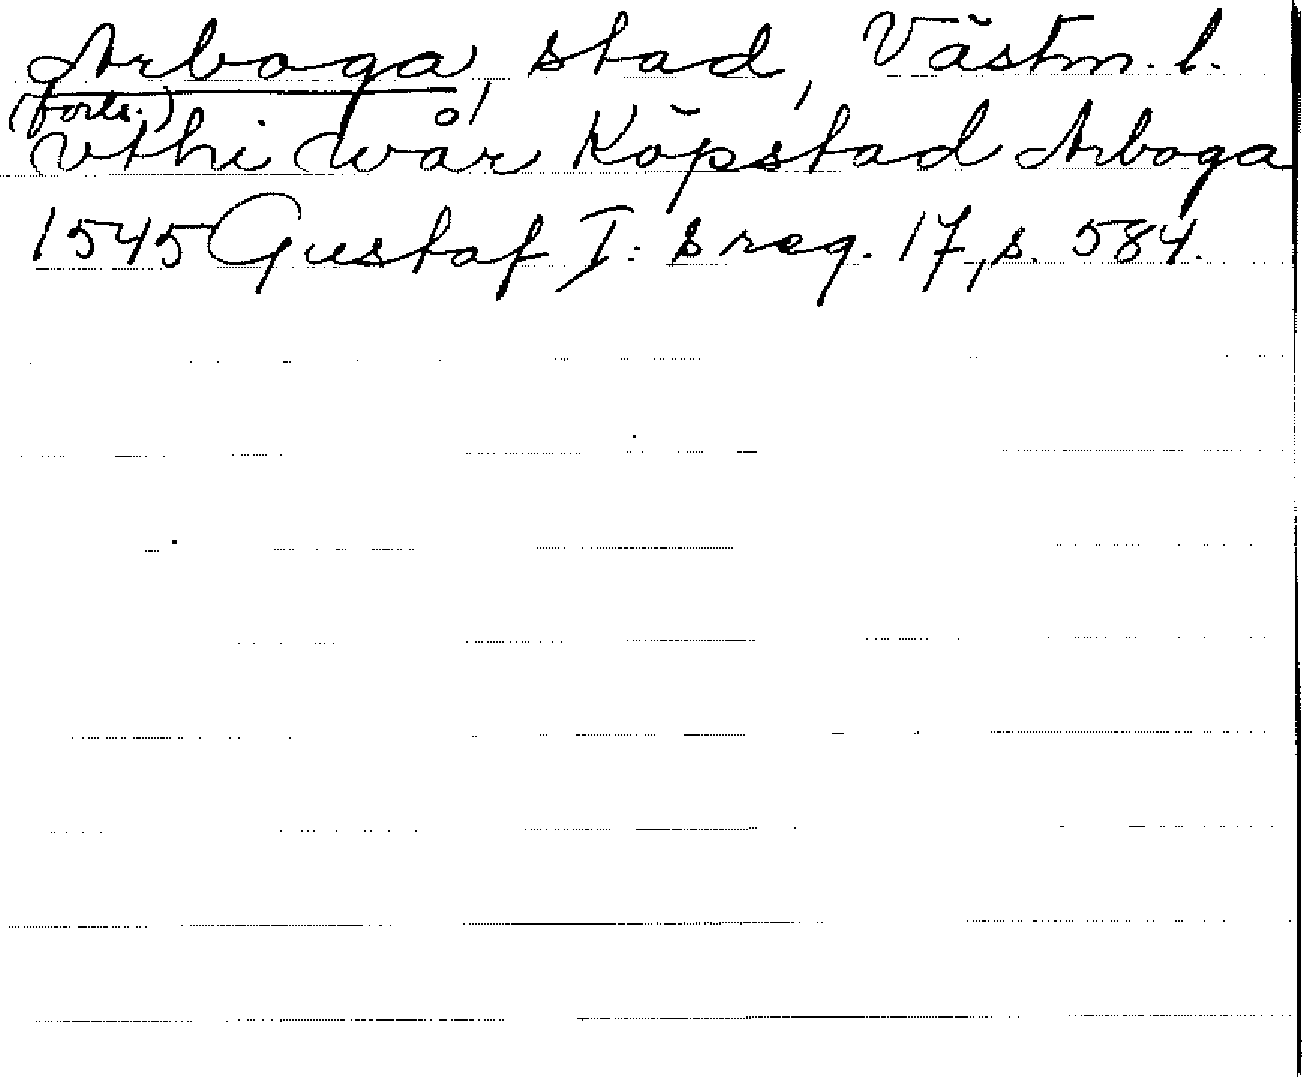 Arboga, stad, Västm. l.
(forts.)
vthi wår Köpstad Arboga
1545 Gustaf I: s reg. 17, s. 584.